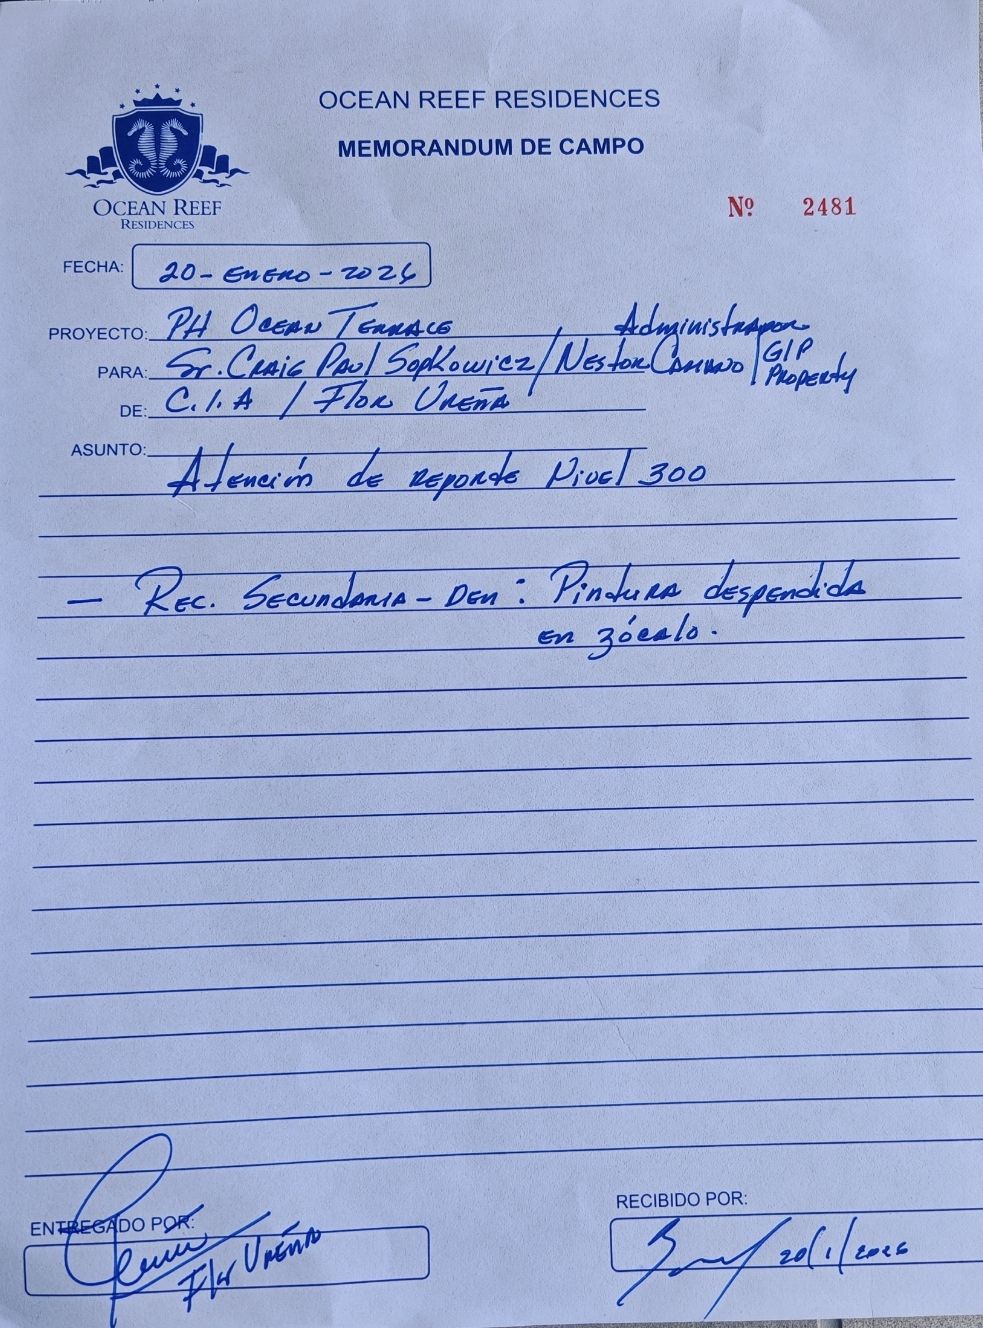 OCEAN REEF RESIDENCES
MEMORANDUM DE CAMPO
OCEAN REEF
RESIDENCES
Nº 2481
FECHA: 20-ENERO-2026
PROYECTO: PH OCEAN TERRACE Administrador
PARA: Sr. CRAIG PAUL SOPKOWICZ / NESTOR CAMANO / GIP PROPERTY
DE: C.I.A / FLOR UREÑA
ASUNTO:
Atención de reporte Nivel 300
— REC. SECUNDARIA - DEN: Pintura despendida
en zócalo.
ENTREGADO POR:
Flor UREÑA
RECIBIDO POR:
20/1/2026